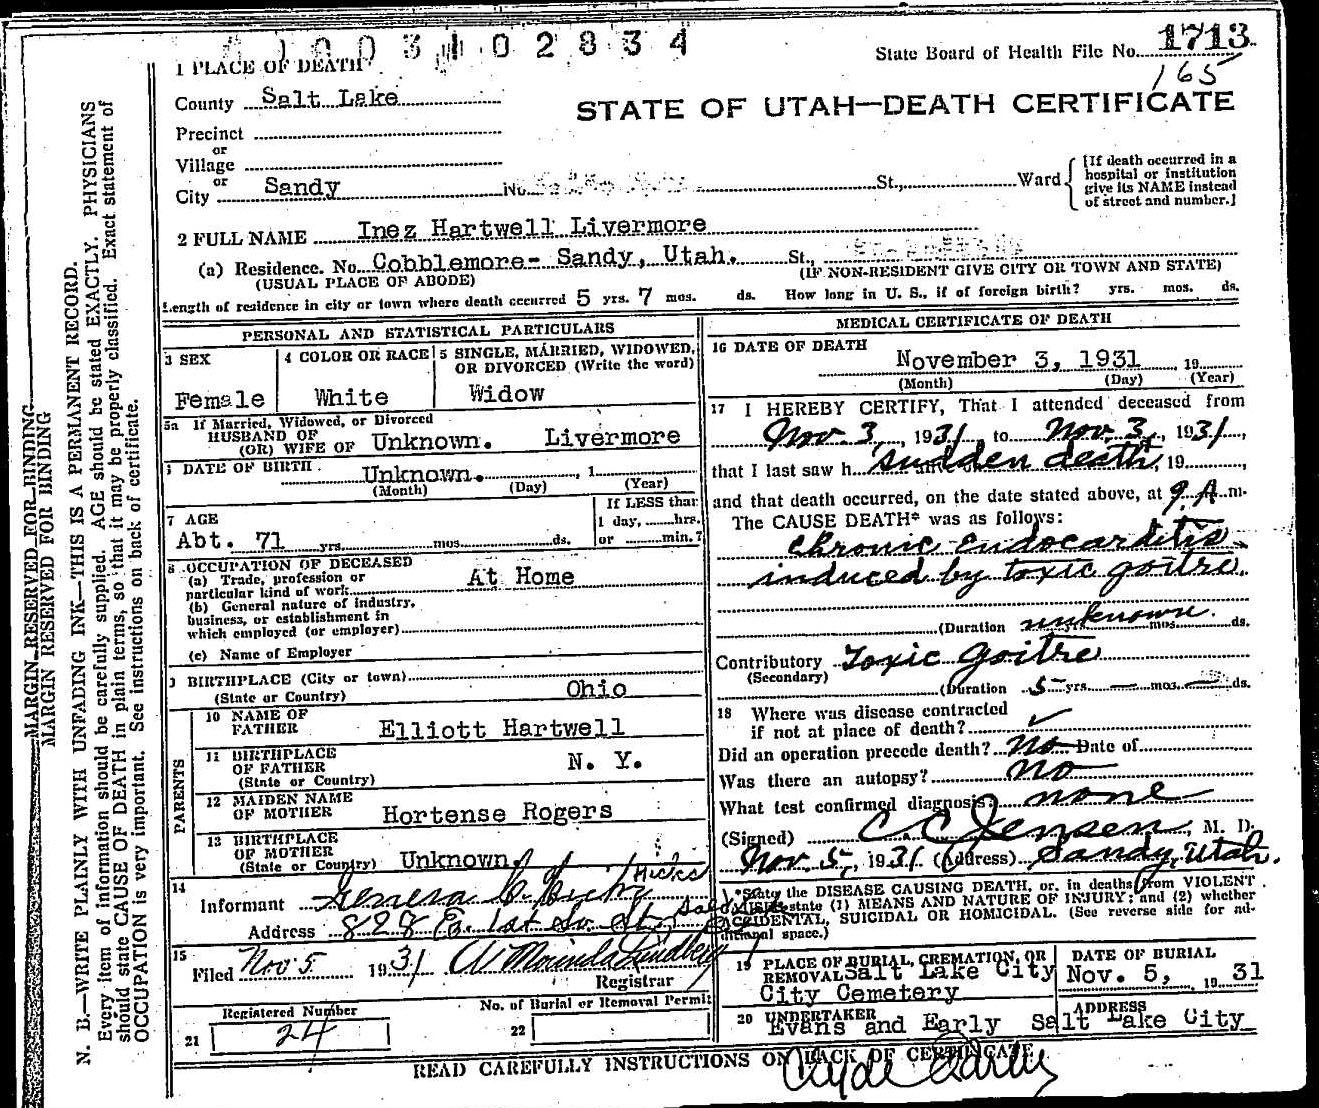 1003102834
State Board of Health File No. 1713
165
1 PLACE OF DEATH
County Salt Lake
STATE OF UTAH—DEATH CERTIFICATE
Precinct
or
Village
or
City Sandy No. St., Ward
[If death occurred in a
hospital or institution
give its NAME instead
of street and number.]
2 FULL NAME Inez Hartwell Livermore
(a) Residence. No. Cobblemore- Sandy, Utah. St.,
(USUAL PLACE OF ABODE) (IF NON-RESIDENT GIVE CITY OR TOWN AND STATE)
Length of residence in city or town where death occurred 5 yrs. 7 mos. ds. How long in U. S., if of foreign birth? yrs. mos. ds.
PERSONAL AND STATISTICAL PARTICULARS
3 SEX
Female
4 COLOR OR RACE
White
5 SINGLE, MARRIED, WIDOWED,
OR DIVORCED (Write the word)
Widow
5a If Married, Widowed, or Divorced
HUSBAND OF
(OR) WIFE OF Unknown. Livermore
DATE OF BIRTH
Unknown. , 1
(Month) (Day) (Year)
7 AGE
Abt. 71 yrs. mos. ds.
If LESS than
1 day, hrs.
or min.?
8 OCCUPATION OF DECEASED
(a) Trade, profession or
particular kind of work At Home
(b) General nature of industry,
business, or establishment in
which employed (or employer)
(c) Name of Employer
BIRTHPLACE (City or town)
(State or Country) Ohio
PARENTS
10 NAME OF
FATHER Elliott Hartwell
11 BIRTHPLACE
OF FATHER N. Y.
(State or Country)
12 MAIDEN NAME
OF MOTHER Hortense Rogers
13 BIRTHPLACE
OF MOTHER
(State or Country) Unknown.
14
Hicks
Informant Geneva C. Hicks
Address 828 E. 1st So. St.,
15
Filed Nov 5 1931
Registrar
Registered Number
21 24
No. of Burial or Removal Permit
22
MEDICAL CERTIFICATE OF DEATH
16 DATE OF DEATH
November 3, 1931 , 19
(Month) (Day) (Year)
17 I HEREBY CERTIFY, That I attended deceased from
Nov. 3, 1931, to Nov. 3, 1931,
that I last saw h sudden death, 19
and that death occurred, on the date stated above, at 9 A m.
The CAUSE DEATH* was as follows:
Chronic Endocarditis
induced by toxic goitre.
(Duration unknown. yrs. mos. ds.
Contributory Toxic goitre
(Secondary)
(Duration 5 yrs. — mos. — ds.
18 Where was disease contracted
if not at place of death?
Did an operation precede death? No Date of
Was there an autopsy? No
What test confirmed diagnosis? none
(Signed) C C Jensen, M. D.
Nov. 5, 1931 (Address) Sandy, Utah.
*State the DISEASE CAUSING DEATH, or, in deaths from VIOLENT
state (1) MEANS AND NATURE OF INJURY; and (2) whether
ACCIDENTAL, SUICIDAL OR HOMICIDAL. (See reverse side for ad-
ditional space.)
19 PLACE OF BURIAL, CREMATION, OR
REMOVAL Salt Lake City
City Cemetery
DATE OF BURIAL
Nov. 5, 1931
20 UNDERTAKER
Evans and Early
ADDRESS
Salt Lake City
READ CAREFULLY INSTRUCTIONS ON BACK OF CERTIFICATE
Clyde Early
MARGIN RESERVED FOR BINDING
MARGIN RESERVED FOR BINDING
N. B.—WRITE PLAINLY WITH UNFADING INK—THIS IS A PERMANENT RECORD.
Every item of information should be carefully supplied. AGE should be stated EXACTLY. PHYSICIANS
should state CAUSE OF DEATH in plain terms, so that it may be properly classified. Exact statement of
OCCUPATION is very important. See instructions on back of certificate.